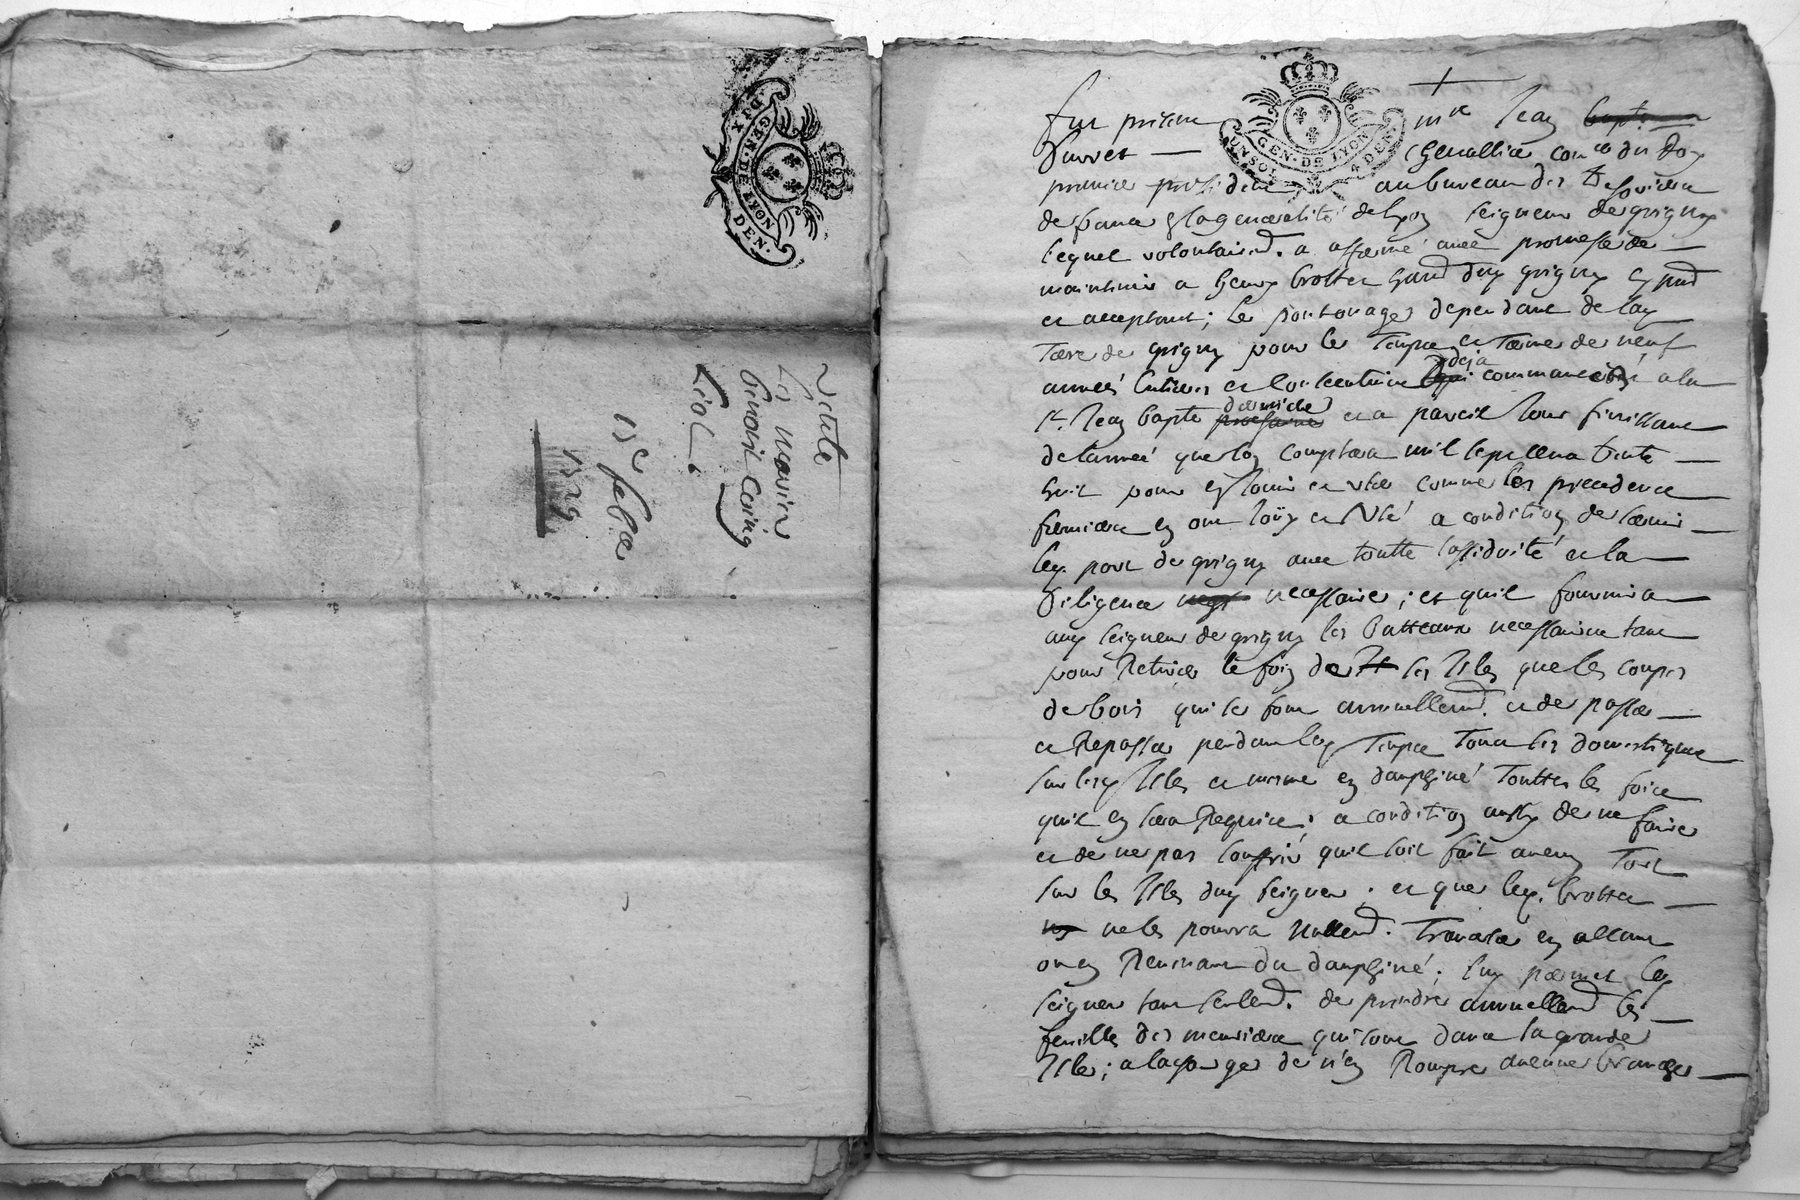 DIX
GEN. DE LYON
DEN.
15e
1729
GEN. DE LYON
4 DEN.
Fut present mre Jean bapte
Duvret chevallier conser du Roy
premier president au bureau des tresoriers
de france & la generalité de lyon seigneur de grigny
lequel volontairemt. a affermé avec promesse de
maintenir a henry brottet hant dud grigny cy pnt
et acceptant; les pontonages dependant de lad
terre de grigny pour le temps et terme de neuf
années entieres et consecutives deja commancées a la
St. Jean bapte derniere et a pareil jour finissant
de l'année que lon comptera mil sept cens trente
huit pour en jouir et user comme les precedents
fermiers en ont jouy et usé a condition de servir
led. port de grigny avec toutte l'assiduité et la
diligence necessaire; et quil fournira
aud seigneur de grigny les batteaux necessaires tant
pour retirer le foin de ses Isles que les coupes
de bois qui se font annuellemt. et de passer
et repasser pendant led temps tous ses domestiques
sur lesd Isles et mesme en dauphiné touttes les fois
quil en sera requis; a condition aussy de ne faire
et de ne pas souffrir quil soit fait aucun tort
sur les Isles dud seigneur; et que led. brottet
ne les pourra nullemt. traverser en allant
ou en revenant du dauphiné; luy permet led
seigneur tant seulemt. de prendre annuellemt les
feuilles des meuriers qui sont dans la grande
Isle; a la charge de n'en rompre aucunes branches